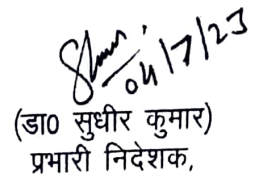 04/7/23
(डा0 सुधीर कुमार)
प्रभारी निदेशक,